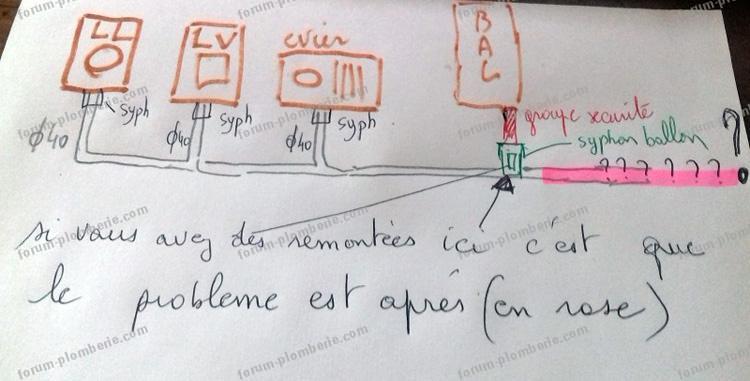 LL
LV
evier
BAL
syph
syph
syph
Ø40
Ø40
Ø40
groupe securité
syphon ballon
? ? ? ? ? ?
?
si vous avez des remontées ici c'est que
le probleme est aprés (en rose)
forum-plomberie.com